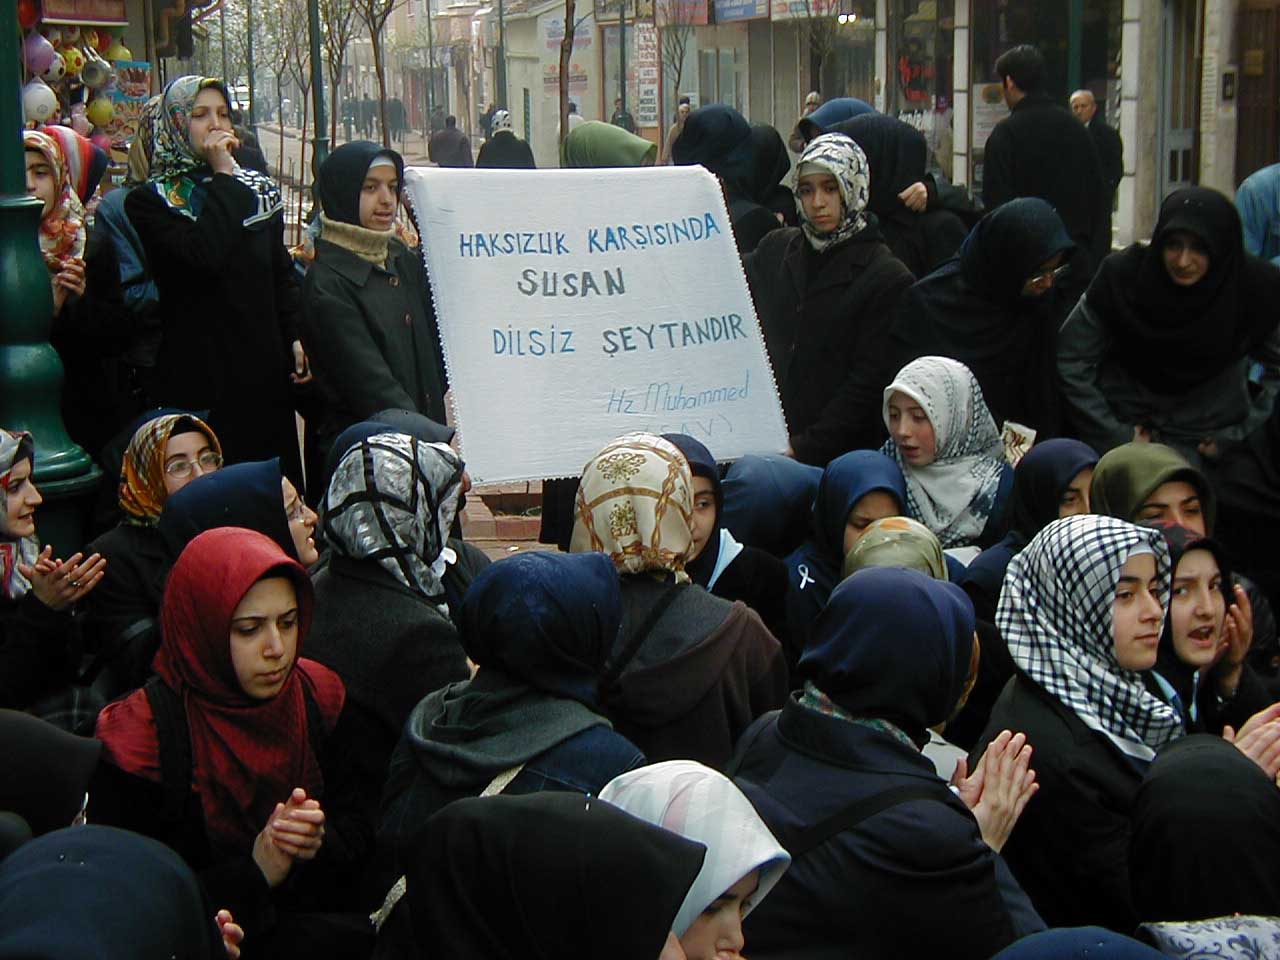 HAKSIZLIK KARŞISINDA
SUSAN
DİLSİZ ŞEYTANDIR
Hz Muhammed
(SAV)